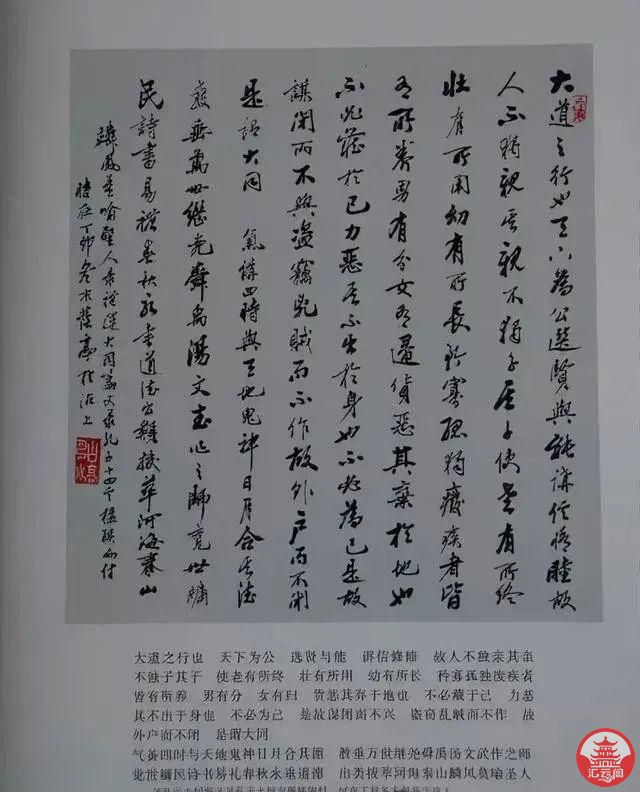 大道之行也天下為公選賢與能講信修睦故
人不獨親其親不獨子其子使老有所終
壯有所用幼有所長矜寡孤獨癈疾者皆
有所養男有分女有歸貨惡其棄於地也
不必藏於己力惡其不出於身也不必為己是故
謀閉而不興盜竊亂賊而不作故外戶而不閉
是謂大同 氣備四時與天地鬼神日月合其德
教垂萬世繼堯舜禹湯文武作之師覺世牖
民詩書易禮春秋永垂道德出類拔萃河海泰山
麟鳳莫喻聖人 录禮運大同篇又录孔子十四
時在丁卯冬
大道之行也 天下为公 选贤与能 讲信修睦 故人不独亲其亲
不独子其子 使老有所终 壮有所用 幼有所长 矜寡孤独废疾者
皆有所养 男有分 女有归 货恶其弃于地也 不必藏于己 力恶
其不出于身也 不必为己 是故谋闭而不兴 盗窃乱贼而不作 故
外户而不闭 是谓大同
气备四时与天地鬼神日月合其德 教垂万世继尧舜禹汤文武作之师
觉世牖民诗书易礼春秋永垂道德 出类拔萃河海泰山麟凤莫喻圣人
汇云阁